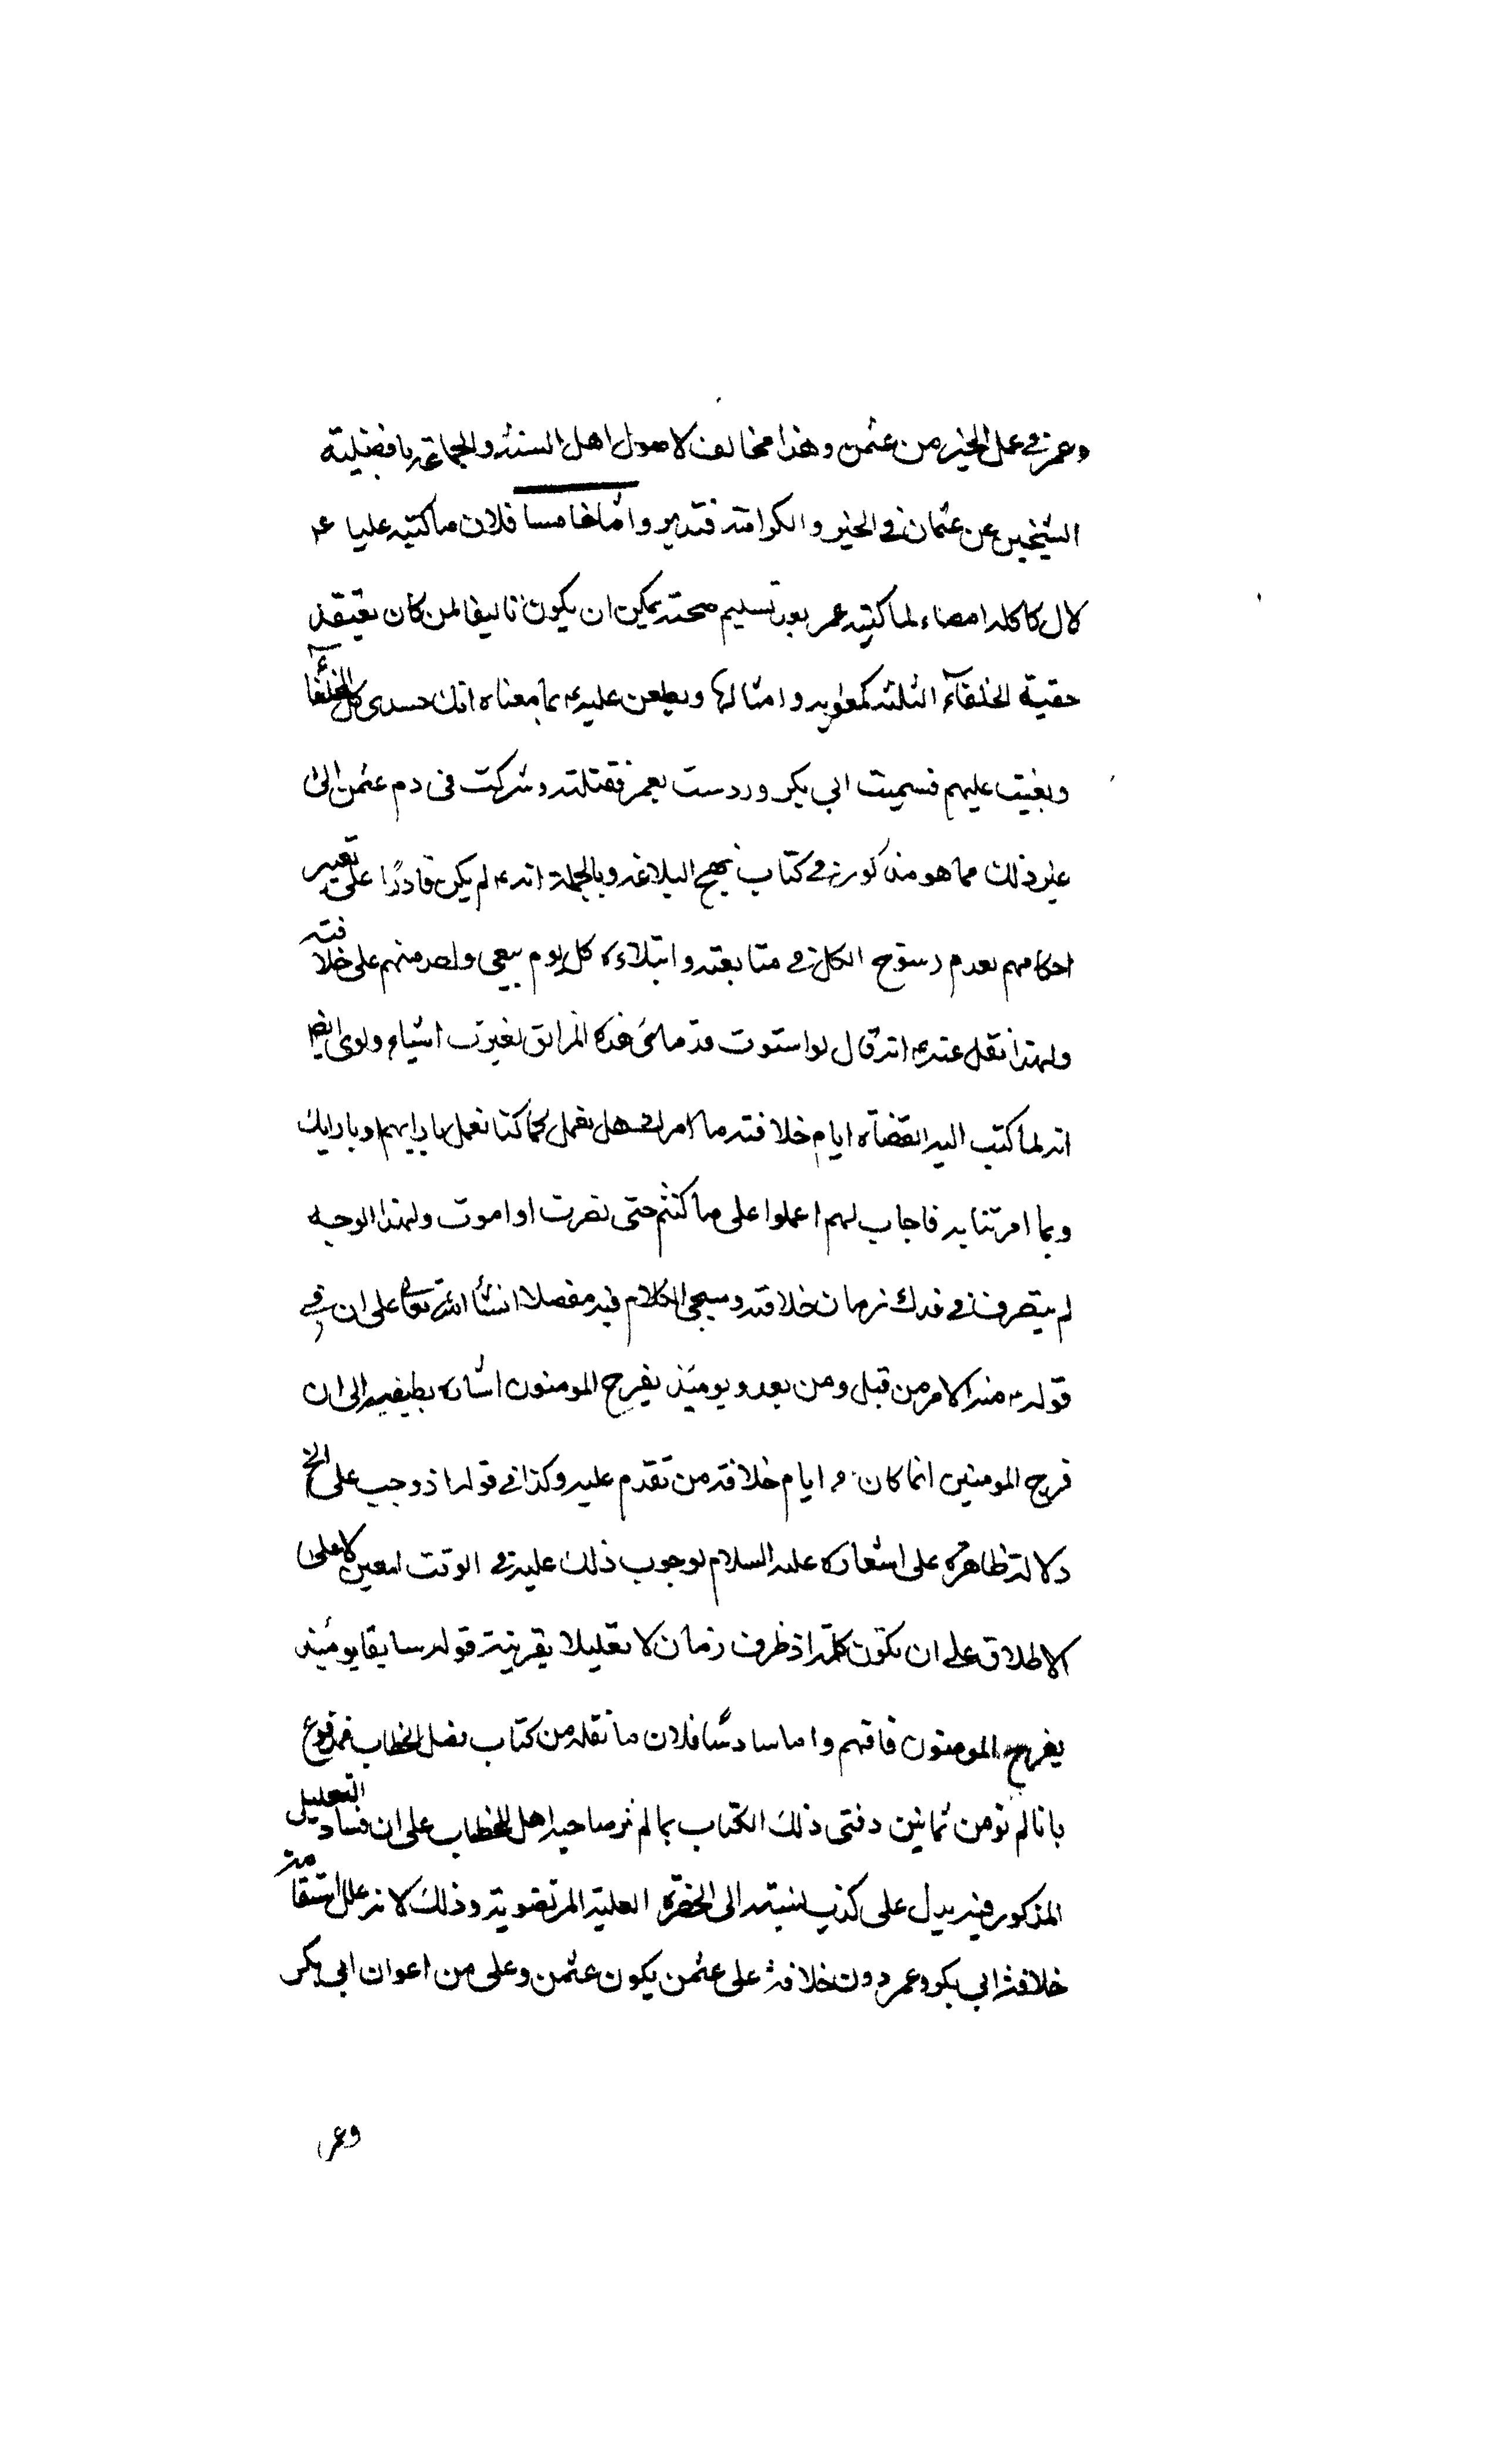 وعمر في عمل الخير من عثمن وهذا مخالف لاصول اهل السنة والجماعة بافضلية
الشيخين عن عثمان في الخير والكرامة فتدبر واما خامسا فلان ما كتبه عليا ع
لال كاكله امضاء لما كتبه عمر بعد تسليم صحته يمكن ان يكون تاليفا لمن كان يعتقد
حقية الخلفآء الثلثه كمعاويه وامثالها ويطعن عليه ع بما معناه انك حسدى كل الخلفآء
وبغيت عليهم فسميت ابي بكر ودست بعمر فقتلته وشركت في دم عثمن الى
غير ذلك مما هو مذكور في كتاب نهج البلاغه وبالجملة انه ع لم يكن قادرًا على تغيير
احكامهم لعدم رسوخ الكل في متابعته وابتلاءه كل يوم ببغي واحد منهم على خلافته
ولهذا نقل عنه ع انه قال لو استوت قدماى هذه المزالق لغيرت اشياء وروى ايضا
انه لما كتب اليه القضاة ايام خلافته ما امرك هل نعمل كما كنا نعمل بارايهم او بارايك
وبما امرتنا به فاجاب لهم اعملوا على ما كنتم حتى نصرت او اموت ولهذا الوجه
لم يتصرف في فدك زمان خلافته وسيجى الكلام فيه مفصلا انشأ الله تعالى على ان في
قوله ع منه الامر من قبل ومن بعد ويومئذ يفرح المومنون اشاره لطيفه الى ان
فرح المومنين انما كان في ايام خلافة من تقدم عليه وكذا في قوله اذ وجب على الخ
دلالة ظاهرة على اشعاره عليه السلام لوجوب ذلك عليه في الوقت المعين لا على
الاطلاق على ان تكون كلمة اذ ظرف زمان لا تعليلا بقرينة قوله سابقا يومئيذ
يفرح المومنون فافهم واما سادسًا فلان ما نقله من كتاب فصل الخطاب فمدفوع
بانا لم نومن ثمانين دفتى ذلك الكتاب بما لم نر صاحبه اهل الخطاب على ان فساد التعليل
المذكور فيه يدل على كذب نسبته الى الحضرة العلية المرتضوية وذلك لانه علل استقامة
خلافة ابي بكر وعمر دون خلافة على عثمن يكون عثمن وعلى من اعوان ابي بكر
وعمر